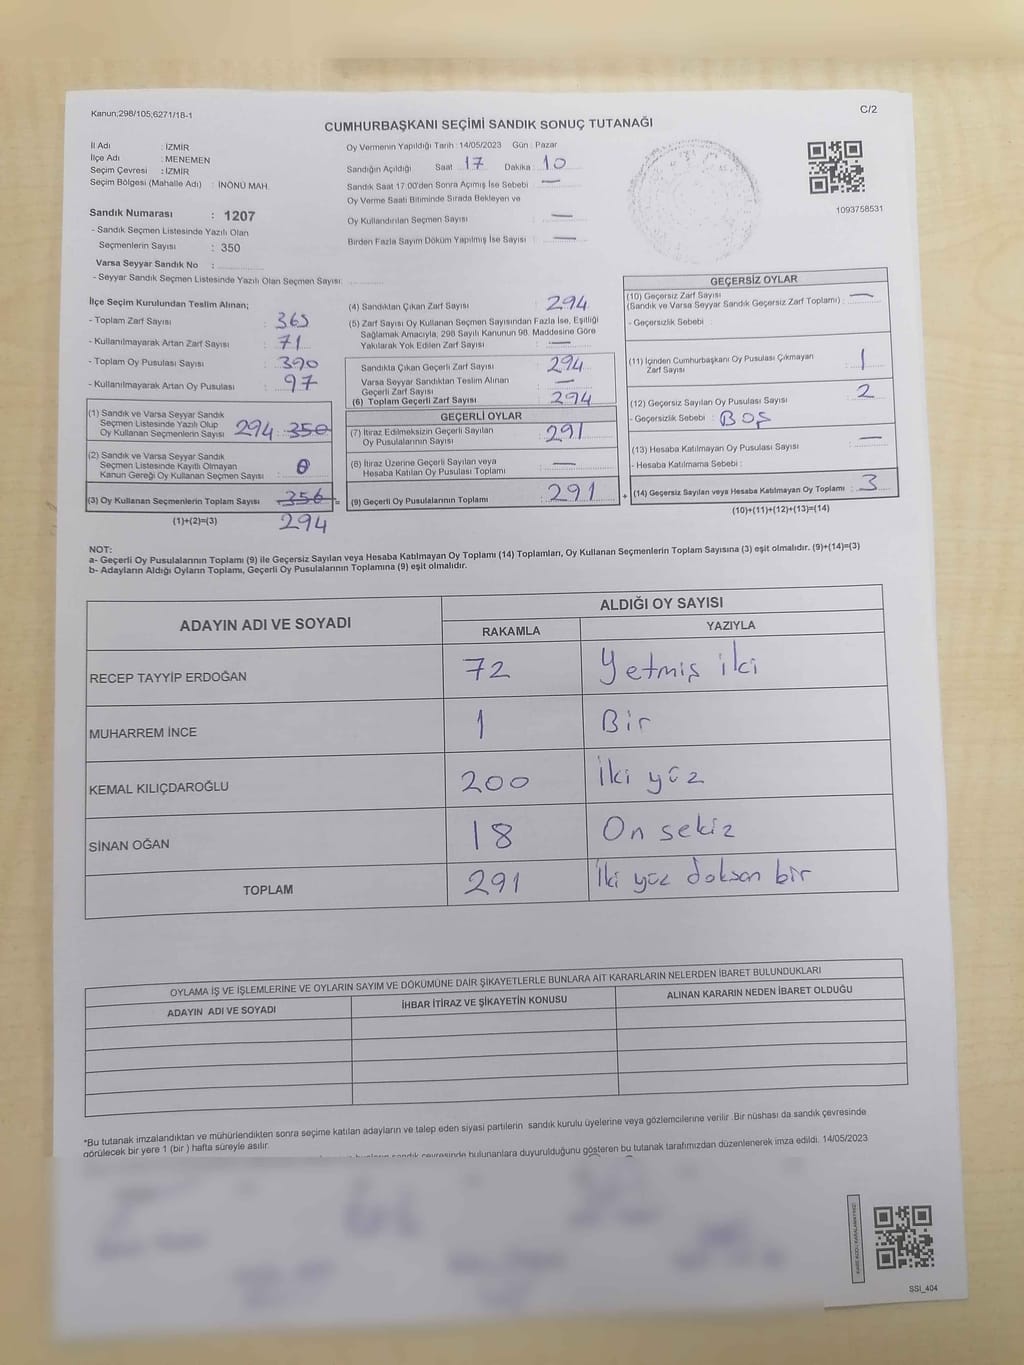 Kanun;298/105;6271/18-1
C/2
CUMHURBAŞKANI SEÇİMİ SANDIK SONUÇ TUTANAĞI
İl Adı : İZMİR
İlçe Adı : MENEMEN
Seçim Çevresi : İZMİR
Seçim Bölgesi (Mahalle Adı) : İNÖNÜ MAH.
Sandık Numarası : 1207
- Sandık Seçmen Listesinde Yazılı Olan
Seçmenlerin Sayısı : 350
Varsa Seyyar Sandık No :
- Seyyar Sandık Seçmen Listesinde Yazılı Olan Seçmen Sayısı:
Oy Vermenin Yapıldığı Tarih : 14/05/2023 Gün : Pazar
Sandığın Açıldığı Saat : 17 Dakika : 10
Sandık Saat 17:00'den Sonra Açımış İse Sebebi : —
Oy Verme Saati Bitiminde Sırada Bekleyen ve
Oy Kullandırılan Seçmen Sayısı : —
Birden Fazla Sayım Döküm Yapılmış İse Sayısı : —
1093758531
İlçe Seçim Kurulundan Teslim Alınan;
- Toplam Zarf Sayısı : 365
- Kullanılmayarak Artan Zarf Sayısı : 71
- Toplam Oy Pusulası Sayısı : 390
- Kullanılmayarak Artan Oy Pusulası : 97
(1) Sandık ve Varsa Seyyar Sandık
Seçmen Listesinde Yazılı Olup
Oy Kullanan Seçmenlerin Sayısı 294 350
(2) Sandık ve Varsa Seyyar Sandık
Seçmen Listesinde Kayıtlı Olmayan
Kanun Gereği Oy Kullanan Seçmen Sayısı : 0
(3) Oy Kullanan Seçmenlerin Toplam Sayısı : 350 =
(1)+(2)=(3) 294
(4) Sandıktan Çıkan Zarf Sayısı : 294
(5) Zarf Sayısı Oy Kullanan Seçmen Sayısından Fazla İse, Eşitliği
Sağlamak Amacıyla; 298 Sayılı Kanunun 98. Maddesine Göre
Yakılarak Yok Edilen Zarf Sayısı : —
Sandıkta Çıkan Geçerli Zarf Sayısı : 294
Varsa Seyyar Sandıktan Teslim Alınan
Geçerli Zarf Sayısı : —
(6) Toplam Geçerli Zarf Sayısı : 294
GEÇERLİ OYLAR
(7) İtiraz Edilmeksizin Geçerli Sayılan
Oy Pusulalarının Sayısı : 291
(8) İtiraz Üzerine Geçerli Sayılan veya
Hesaba Katılan Oy Pusulası Toplamı : —
(9) Geçerli Oy Pusulalarının Toplamı : 291 +
GEÇERSİZ OYLAR
(10) Geçersiz Zarf Sayısı
(Sandık ve Varsa Seyyar Sandık Geçersiz Zarf Toplamı) : —
- Geçersizlik Sebebi :
(11) İçinden Cumhurbaşkanı Oy Pusulası Çıkmayan
Zarf Sayısı : 1
(12) Geçersiz Sayılan Oy Pusulası Sayısı : 2
- Geçersizlik Sebebi : BOŞ
(13) Hesaba Katılmayan Oy Pusulası Sayısı : —
- Hesaba Katılmama Sebebi :
(14) Geçersiz Sayılan veya Hesaba Katılmayan Oy Toplamı : 3
(10)+(11)+(12)+(13)=(14)
NOT:
a- Geçerli Oy Pusulalarının Toplamı (9) ile Geçersiz Sayılan veya Hesaba Katılmayan Oy Toplamı (14) Toplamları, Oy Kullanan Seçmenlerin Toplam Sayısına (3) eşit olmalıdır. (9)+(14)=(3)
b- Adayların Aldığı Oyların Toplamı, Geçerli Oy Pusulalarının Toplamına (9) eşit olmalıdır.
ADAYIN ADI VE SOYADI
ALDIĞI OY SAYISI
RAKAMLA YAZIYLA
RECEP TAYYİP ERDOĞAN 72 Yetmiş iki
MUHARREM İNCE 1 Bir
KEMAL KILIÇDAROĞLU 200 İki yüz
SİNAN OĞAN 18 On sekiz
TOPLAM 291 İki yüz doksan bir
OYLAMA İŞ VE İŞLEMLERİNE VE OYLARIN SAYIM VE DÖKÜMÜNE DAİR ŞİKAYETLERLE BUNLARA AİT KARARLARIN NELERDEN İBARET BULUNDUKLARI
ADAYIN ADI VE SOYADI İHBAR İTİRAZ VE ŞİKAYETİN KONUSU ALINAN KARARIN NEDEN İBARET OLDUĞU
*Bu tutanak imzalandıktan ve mühürlendikten sonra seçime katılan adayların ve talep eden siyasi partilerin sandık kurulu üyelerine veya gözlemcilerine verilir .Bir nüshası da sandık çevresinde
görülecek bir yere 1 (bir ) hafta süreyle asılır.
sandık çevresinde bulunanlara duyurulduğunu gösteren bu tutanak tarafımızdan düzenlenerek imza edildi. 14/05/2023
SSI_404